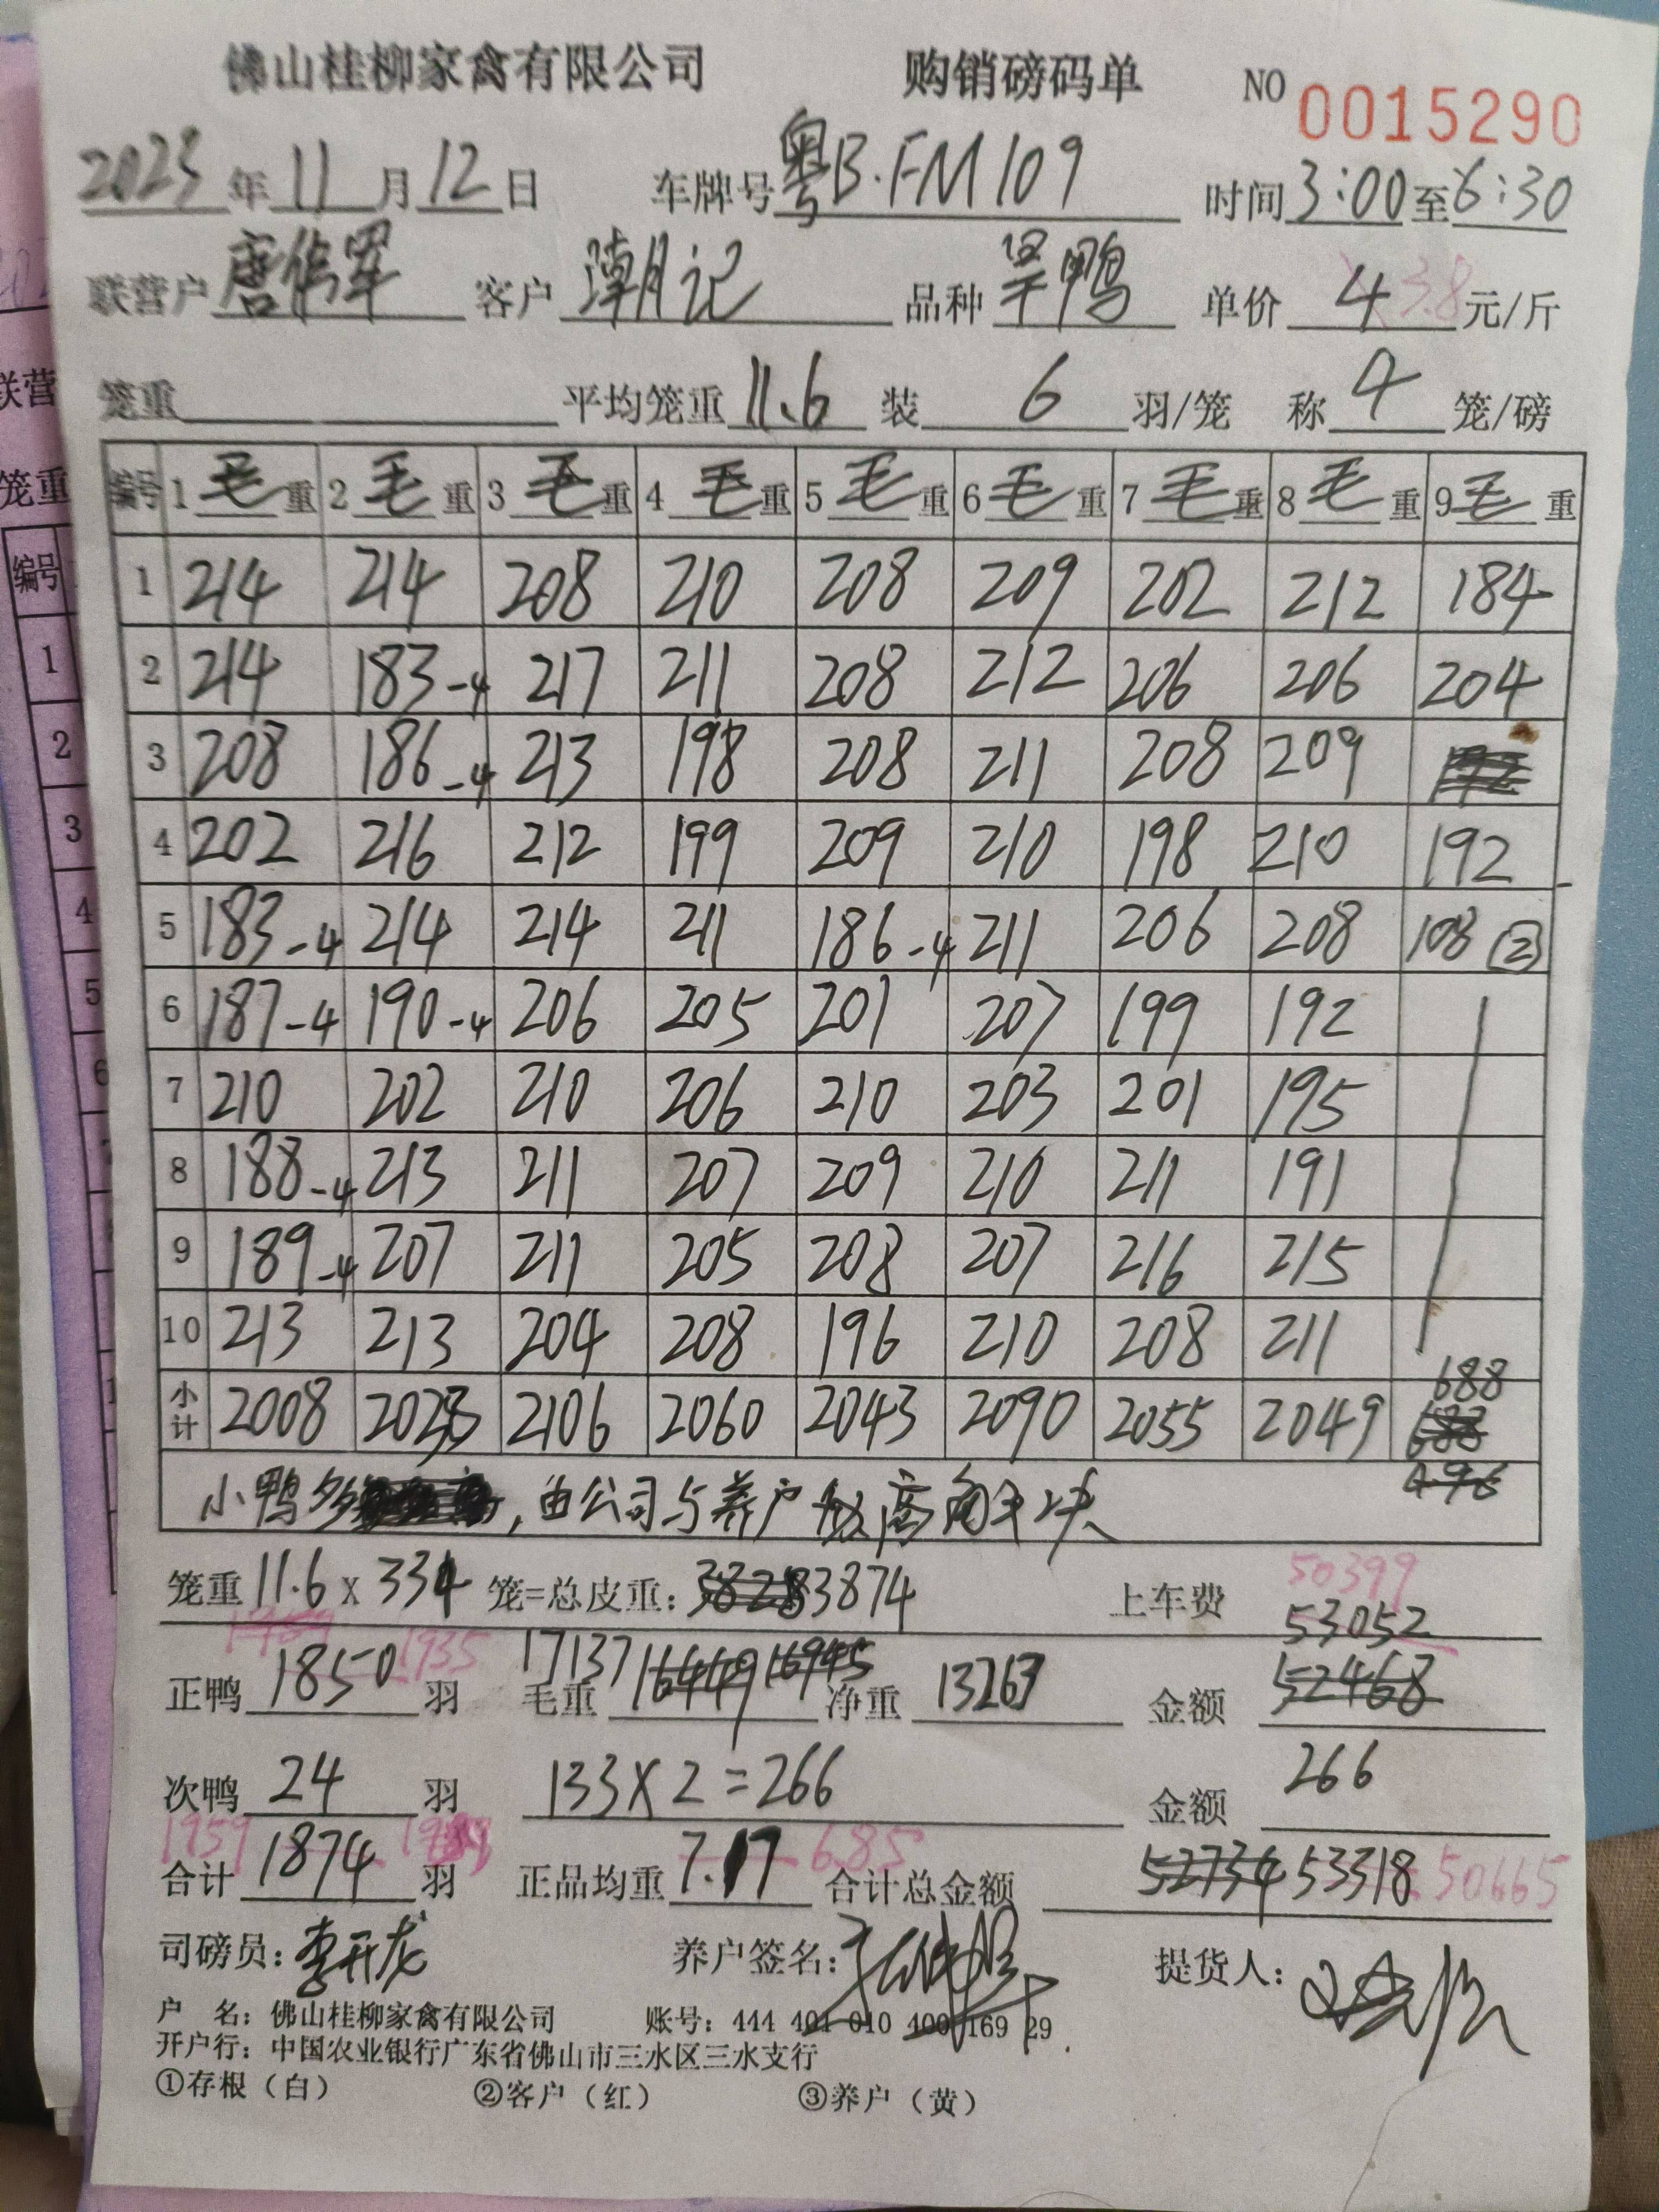 佛山桂柳家禽有限公司 购销磅码单 NO 0015290
2023年11月12日 车牌号粤B.FM109 时间3:00至6:30
联营户 唐伟军 客户 潮记 品种 旱鸭 单价 4 3.8 元/斤
笼重 平均笼重 11.6 装 6 羽/笼 称 4 笼/磅
编号 1毛重 2毛重 3毛重 4毛重 5毛重 6毛重 7毛重 8毛重 9毛重
1 214 214 208 210 208 209 202 212 184
2 214 183-4 217 211 208 212 206 206 204
3 208 186-4 213 198 208 211 208 209
4 202 216 212 199 209 210 198 210 192
5 183-4 214 214 211 186-4 211 206 208 108 ②
6 187-4 190-4 206 205 201 207 199 192
7 210 202 210 206 210 203 201 195
8 188-4 213 211 207 209 210 211 191
9 189-4 207 211 205 208 207 216 215
10 213 213 204 208 196 210 208 211
688
小计 2008 2028 2106 2060 2043 2090 2055 2049
496
小鸭多,由公司与养户
笼重 11.6 x 334 笼=总皮重: 3828 3874 上车费 50399
53052
正鸭 1850 1935 羽 毛重 17137 16449 16945 净重 13263 金额 52468
次鸭 24 羽 133X2=266 金额 266
1959
合计 1874 羽 正品均重 7.17 6.85 合计总金额 52734 53318 50665
司磅员: 李开龙 养户签名: 提货人:
户 名: 佛山桂柳家禽有限公司 账号: 444 401 010 400 169 29
开户行: 中国农业银行广东省佛山市三水区三水支行
①存根(白) ②客户(红) ③养户(黄)
联营
笼重
编号
1
2
3
4
5
6